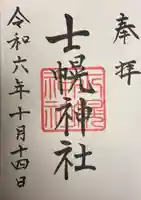 奉拝
士幌神社
令和六年十月十四日